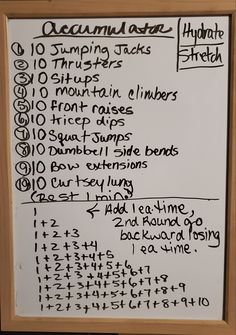 Accumulator
Hydrate
Stretch
① 10 Jumping Jacks
② 10 Thrusters
③ 10 Situps
④ 10 mountain climbers
⑤ 10 front raises
⑥ 10 tricep dips
⑦ 10 Squat Jumps
⑧ 10 Dumbbell side bends
⑨ 10 Bow extensions
⑩ 10 Curtsey lung
(Rest 1 min)
1
1+2
1+2+3
1+2+3+4
1+2+3+4+5
1+2+3+4+5+6
1+2+3+4+5+6+7
1+2+3+4+5+6+7+8
1+2+3+4+5+6+7+8+9
1+2+3+4+5+6+7+8+9+10
← Add 1 ea time,
2nd Round go
backward losing
1 ea time.